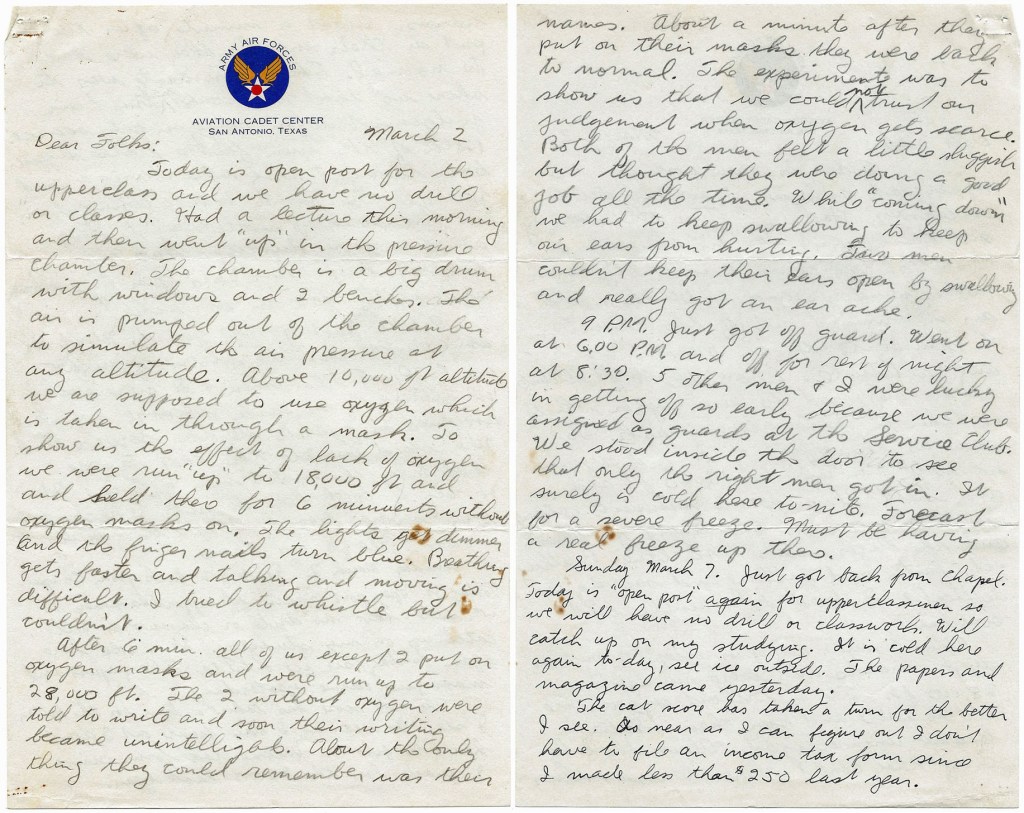 ARMY AIR FORCES
AVIATION CADET CENTER
SAN ANTONIO, TEXAS
March 2
Dear Folks:
Today is open post for the
upperclass and we have no drill
or classes. Had a lecture this morning
and then went "up" in the pressure
chamber. The chamber is a big drum
with windows and 2 benches. The
air is pumped out of the chamber
to simulate the air pressure at
any altitude. Above 10,000 ft altitude
we are supposed to use oxygen which
is taken in through a mask. To
show us the effect of lack of oxygen
we were run "up" to 18,000 ft and
and held there for 6 minuets without
oxygen masks on. The lights get dimmer
and the finger nails turn blue. Breathing
gets faster and talking and moving is
difficult. I tried to whistle but
couldn't.
After 6 min. all of us except 2 put on
oxygen masks and were run up to
28,000 ft. The 2 without oxygen were
told to write and soon their writing
became unintelligable. About the only
thing they could remember was their
names. About a minute after they
put on their masks they were back
to normal. The experiment was to
show us that we could not trust our
judgement when oxygen gets scarce.
Both of the men felt a little sluggish
but thought they were doing a good
job all the time. While "coming down"
we had to keep swallowing to keep
our ears from hurting. Two men
couldn't keep their ears open by swallowing
and really got an ear ache.
9 P.M. Just got off guard. Went on
at 6,00 P.M and off for rest of night
at 8:30. 5 other men & I were lucky
in getting off so early because we were
assigned as guards at the Service Club.
We stood inside the door to see
that only the right men got in. It
surely is cold here to-nite. Forecast
for a severe freeze. Must be having
a real freeze up there.
Sunday March 7. Just got back from Chapel.
Today is "open post" again for upperclassmen so
we will have no drill or classwork. Will
catch up on my studying. It is cold here
again to-day, see ice outside. The papers and
magazine came yesterday.
The cat score has taken a turn for the better
I see. As near as I can figure out I don't
have to file an income tax form since
I made less than $250 last year.